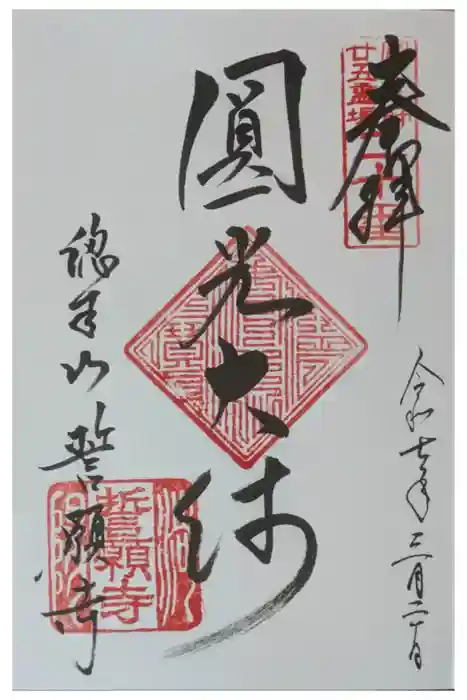 奉拝
廿五霊場
圓光大師
總本山 誓願寺
誓願寺
令和七年三月二十日